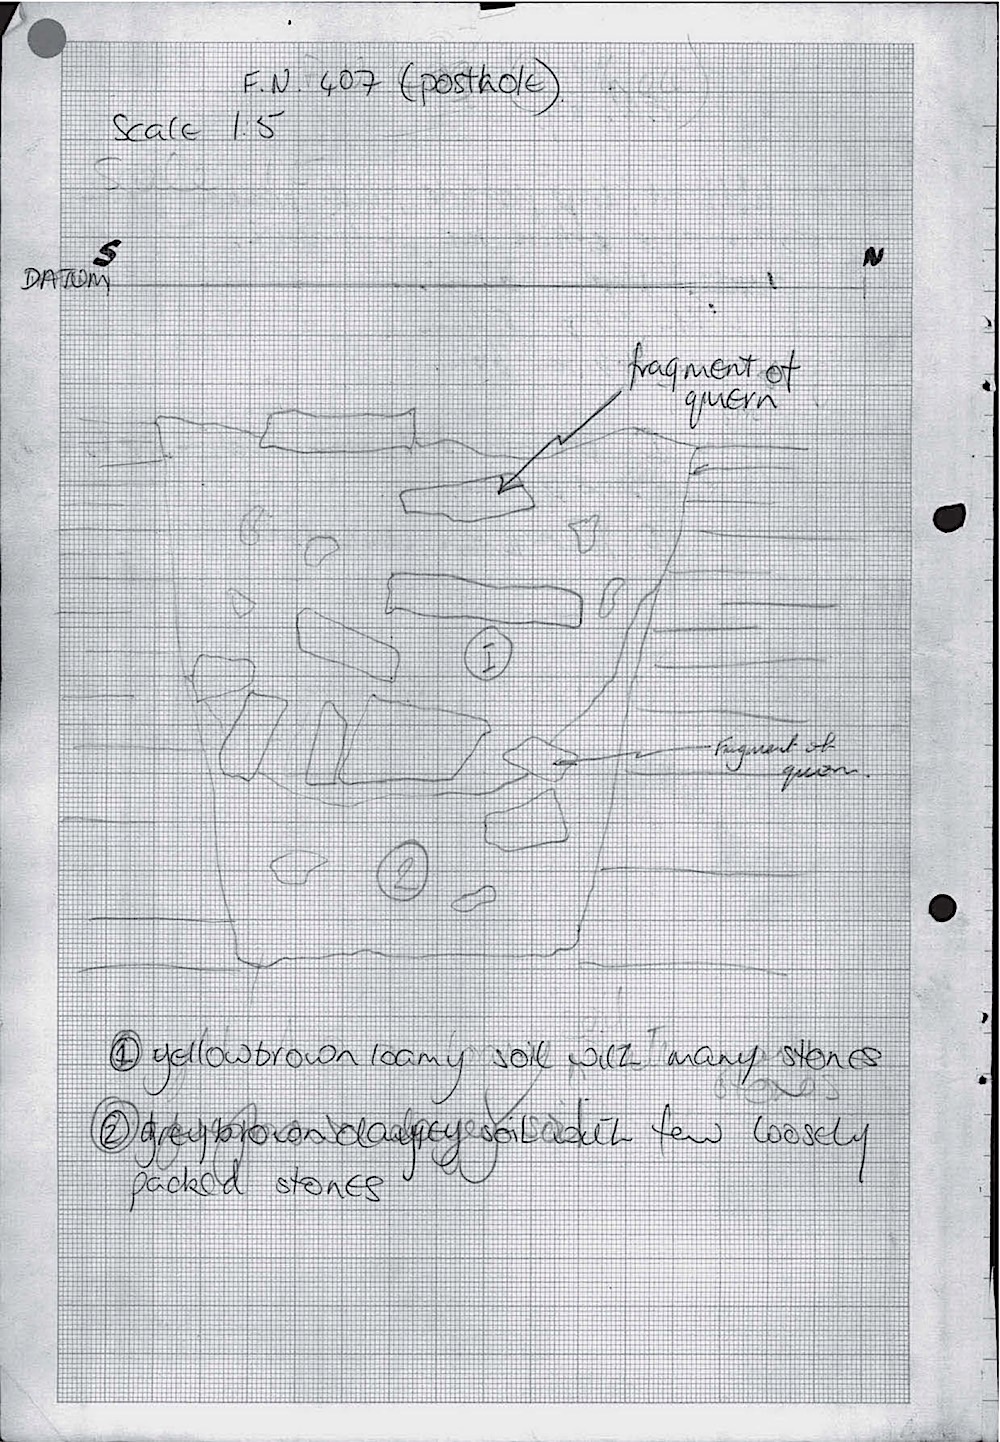 F.N. 407 (posthole).
Scale 1:5
S
N
DATUM
fragment of
quern
1
Fragment of
quern.
2
① yellowbrown loamy soil with many stones
② greybrown clayey soil with few loosely
packed stones